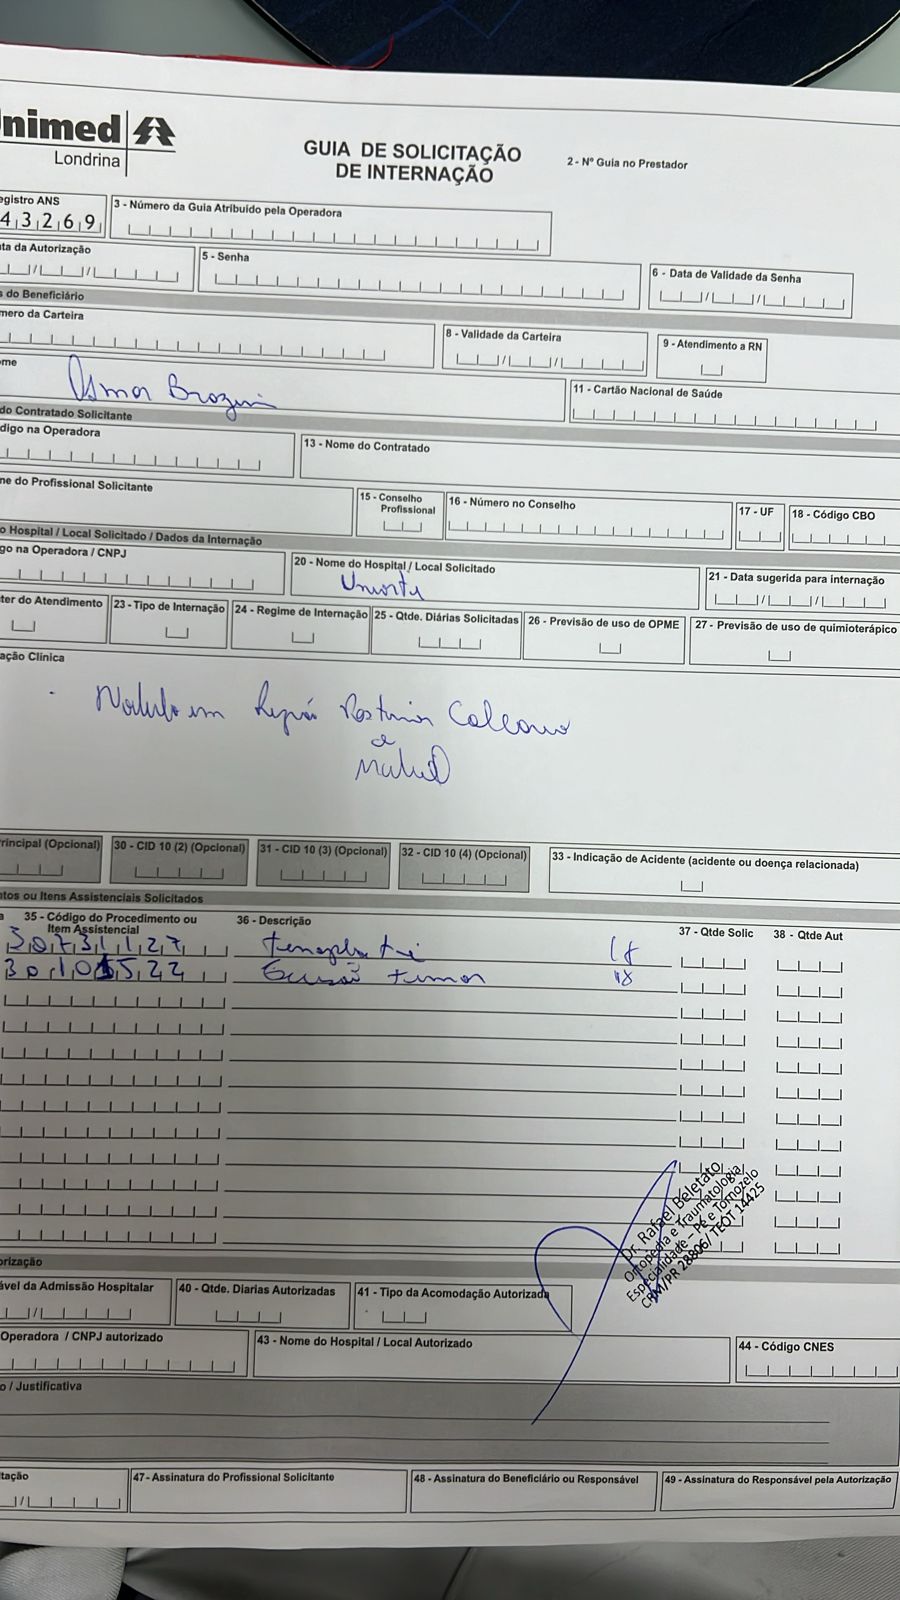 nimed
Londrina
GUIA DE SOLICITAÇÃO
DE INTERNAÇÃO
2 - Nº Guia no Prestador
egistro ANS
4 3 2 6 9
3 - Número da Guia Atribuído pela Operadora
ta da Autorização
5 - Senha
6 - Data de Validade da Senha
s do Beneficiário
mero da Carteira
8 - Validade da Carteira
9 - Atendimento a RN
ome
Osmar
11 - Cartão Nacional de Saúde
do Contratado Solicitante
digo na Operadora
13 - Nome do Contratado
ne do Profissional Solicitante
15 - Conselho Profissional
16 - Número no Conselho
17 - UF
18 - Código CBO
o Hospital / Local Solicitado / Dados da Internação
go na Operadora / CNPJ
20 - Nome do Hospital / Local Solicitado
21 - Data sugerida para internação
ter do Atendimento
23 - Tipo de Internação
24 - Regime de Internação
25 - Qtde. Diárias Solicitadas
26 - Previsão de uso de OPME
27 - Previsão de uso de quimioterápico
ação Clínica
Nodulo em Região Posterior Calcaneo
e
rincipal (Opcional)
30 - CID 10 (2) (Opcional)
31 - CID 10 (3) (Opcional)
32 - CID 10 (4) (Opcional)
33 - Indicação de Acidente (acidente ou doença relacionada)
ntos ou Itens Assistenciais Solicitados
a
35 - Código do Procedimento ou
Item Assistencial
36 - Descrição
37 - Qtde Solic
38 - Qtde Aut
3 0 7 3 1 1 2 7 tenoplastia
tumor
Dr. Rafael Beletato
Ortopedia e Traumatologia
Especialidade – Pé e Tornozelo
CRM/PR 28806/ TEOT 14425
orização
ável da Admissão Hospitalar
40 - Qtde. Diarias Autorizadas
41 - Tipo da Acomodação Autorizada
Operadora / CNPJ autorizado
43 - Nome do Hospital / Local Autorizado
44 - Código CNES
o / Justificativa
itação
47 - Assinatura do Profissional Solicitante
48 - Assinatura do Beneficiário ou Responsável
49 - Assinatura do Responsável pela Autorização